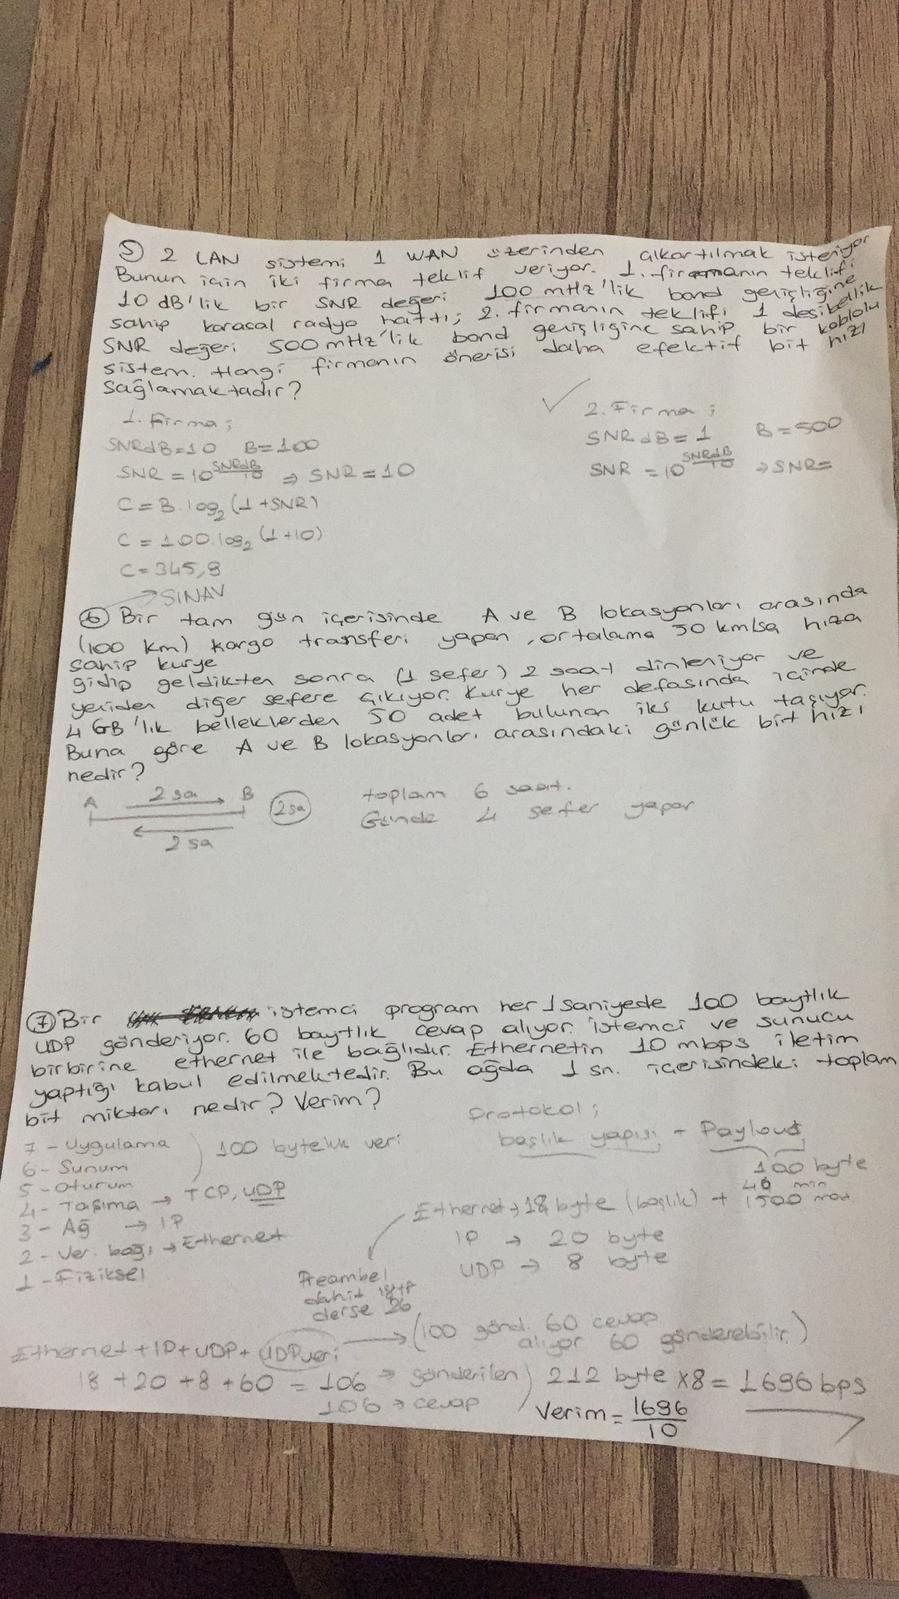 5) 2 LAN sistemi 1 WAN üzerinden çıkartılmak isteniyor
Bunun için iki firma teklif veriyor. 1. firmanın teklifi
10 dB'lik bir SNR değeri 100 mHz'lik band genişliğine
sahip karasal radyo hattı; 2. firmanın teklifi 1 desibellik
SNR değeri 500 mHz'lik band genişliğine sahip bir kablolu
sistem. Hangi firmanın önerisi daha efektif bit hızı
sağlamaktadır?
1. Firma;
SNRdB=10 B=100
SNR = 10^SNRdB/10 ⇒ SNR=10
C=B.log₂(1+SNR)
C=100.log₂(1+10)
C=345,9
✓ 2. Firma;
SNRdB=1 B=500
SNR = 10^SNRdB/10 ⇒ SNR=
→ SINAV
6) Bir tam gün içerisinde A ve B lokasyonları arasında
(100 km) kargo transferi yapan, ortalama 50 km/sa hıza
sahip kurye
gidip geldikten sonra (1 sefer) 2 saat dinleniyor ve
yeniden diğer sefere çıkıyor. Kurye her defasında içinde
4 GB'lık belleklerden 50 adet bulunan iki kutu taşıyor.
Buna göre A ve B lokasyonları arasındaki günlük bit hızı
nedir?
A 2 sa B
2 sa
2sa
toplam 6 saat.
Günde 4 sefer yapar
7) Bir istemci program her 1 saniyede 100 baytlık
UDP gönderiyor. 60 baytlık cevap alıyor. istemci ve sunucu
birbirine ethernet ile bağlıdır. Ethernetin 10 mbps iletim
yaptığı kabul edilmektedir. Bu ağda 1 sn. içerisindeki toplam
bit miktarı nedir? Verim?
7 - Uygulama
6 - Sunum
5 - Oturum
4 - Taşıma → TCP, UDP
3 - Ağ → IP
2 - Veri bağı → Ethernet
1 - Fiziksel
100 bytelık veri
Protokol;
başlık yapısı + Payload
100 byte
46 min
1500 max
Ethernet → 18 byte (başlık) +
IP → 20 byte
UDP → 8 byte
Preambel
dahil
derse 26
Ethernet + IP + UDP + UDPveri → (100 gönd. 60 cevap
alıyor 60 gönderebilir.)
18 + 20 + 8 + 60 = 106 → gönderilen
106 → cevap
212 byte x8 = 1696 bps
Verim = 1696/10